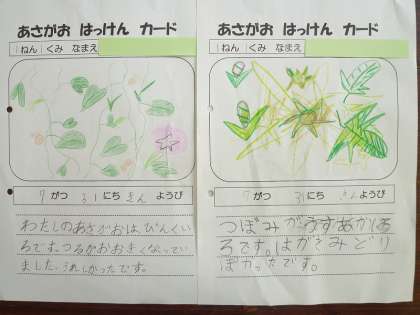 あさがお はっけん カード
1ねん くみ なまえ
7がつ 31にち きんようび
わたしのあさがおは、ぴんくい
ろです。つるがおおきくなってい
ました。うれしかったです。
あさがお はっけん カード
1ねん くみ なまえ
7がつ 31にち きんようび
つぼみがうすあかいろ
です。はがきみどり
ぽかったです。